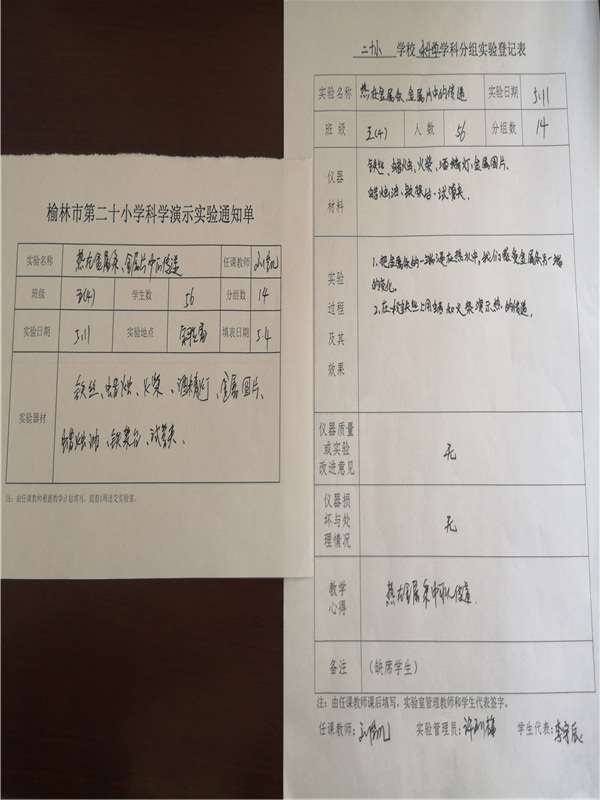 榆林市第二十小学科学演示实验通知单
实验名称 热在金属条、金属片中的传递 任课教师
班级 五(4) 学生数 56 分组数 14
实验日期 5.11 实验地点 实验室 填表日期 5.4
实验器材 铁丝、蜡烛、火柴、酒精灯、金属圆片、
蜡烛油、铁架台、试管夹、
注：由任课教师根据教学计划填写，提前1周送交实验室。
二十小 学校 科学 学科分组实验登记表
实验名称 热在金属条、金属片中的传递 实验日期 5.11
班级 五(4) 人数 56 分组数 14
仪器材料 铁丝、蜡烛、火柴、酒精灯、金属圆片、
蜡烛油、铁架台、试管夹
实验过程及其效果 1.把金属条的一端浸在热水中，我们感觉金属条另一端
的变化
2.在一根铁丝上用蜡和火柴演示热的传递。
仪器质量或实验改进意见 无
仪器损坏与处理情况 无
教学心得 热在金属条中的传递
备注 (缺席学生)
注：由任课教师课后填写，实验室管理教师和学生代表签字。
任课教师： 实验管理员： 学生代表：